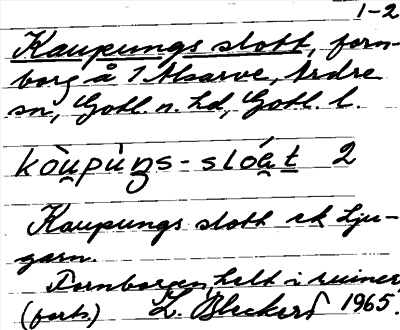 1-2
Kaupungs slott, forn-
borg å 1 Alsarve, Ardre
sn, Gotl. n. hd, Gotl. l.
kòu̯pùŋs-slóa̯t 2
Kaupungs slott sk Lju-
garn.
Fornborgen, helt i ruiner,
(forts.) L. Bleckert 1965.